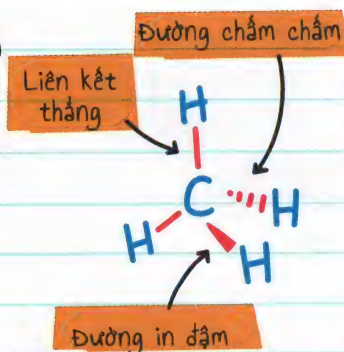 Đường chấm chấm
Liên kết
thẳng
H
C
H
H
H
Đường in đậm